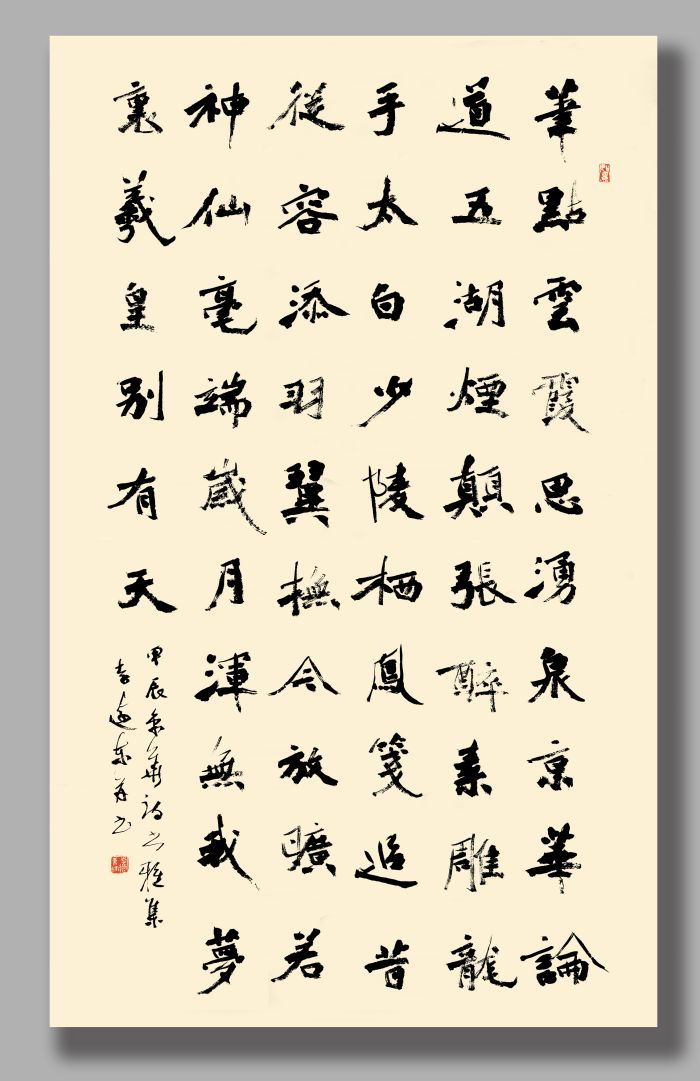 筆點雲霞思湧泉京華論
道五湖煙顛張醉素雕龍
手太白少陵栖鳳箋追昔
從容添羽翼撫今放曠若
神仙毫端歲月渾無我夢
裏羲皇別有天
甲辰京華詩書雅集
李遠東并書